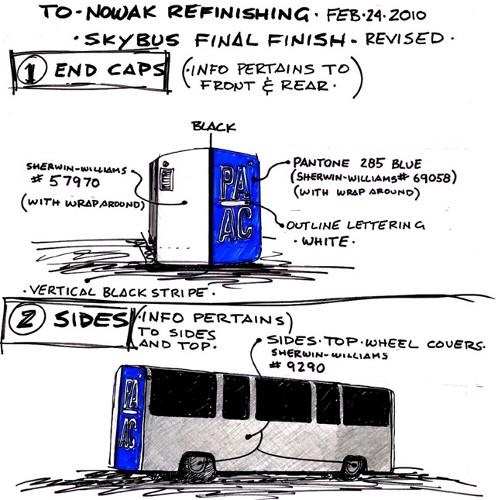 TO-NOWAK REFINISHING · FEB·24·2010
·SKYBUS FINAL FINISH- REVISED·
1 END CAPS (·INFO PERTAINS TO
FRONT & REAR·)
BLACK
SHERWIN-WILLIAMS
# 57970
(WITH WRAP AROUND)
PA
AC
PANTONE 285 BLUE
(SHERWIN-WILLIAMS # 69058)
(WITH WRAP AROUND)
OUTLINE LETTERING
·WHITE·
·VERTICAL BLACK STRIPE·
2 SIDES (·INFO PERTAINS)
TO SIDES
AND TOP·
·SIDES·TOP·WHEEL COVERS·
SHERWIN-WILLIAMS
# 9290
PA
AC